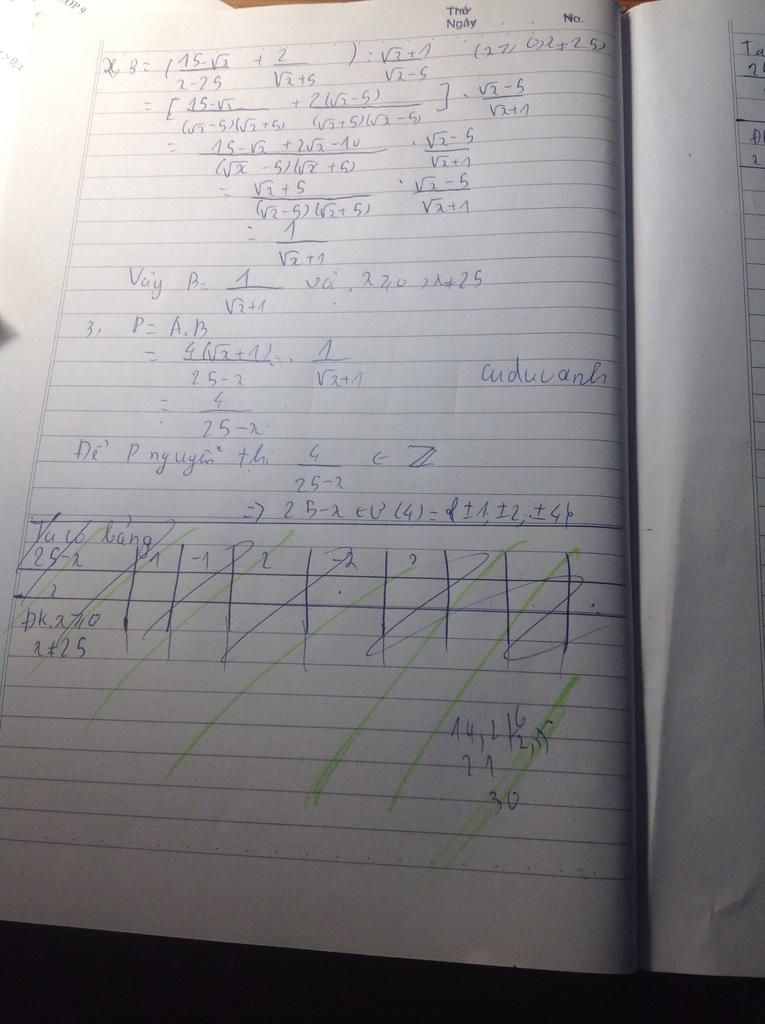 OP9
Thứ
Ngày
No.
2, B = (15-√x / x-25 + 2 / √x+5) : √x+1 / √x-5 (x ≥ 0, x ≠ 25)
= [15-√x / (√x-5)(√x+5) + 2(√x-5) / (√x+5)(√x-5)] . √x-5 / √x+1
= 15-√x+2√x-10 / (√x-5)(√x+5) . √x-5 / √x+1
= √x+5 / (√x-5)(√x+5) . √x-5 / √x+1
= 1 / √x+1
Vậy B = 1 / √x+1 và x ≥ 0, x ≠ 25
3, P = A.B
= 4(√x+1) / 25-x . 1 / √x+1
cuducanh
= 4 / 25-x
Để P nguyên thì 4 / 25-x ∈ ℤ
=> 25-x ∈ Ư(4) = {±1, ±2, ±4}
Ta có bảng
25-x 1 -1 2 -2
x
Đk. x ≥ 0
x ≠ 25
14,2 6
21
30